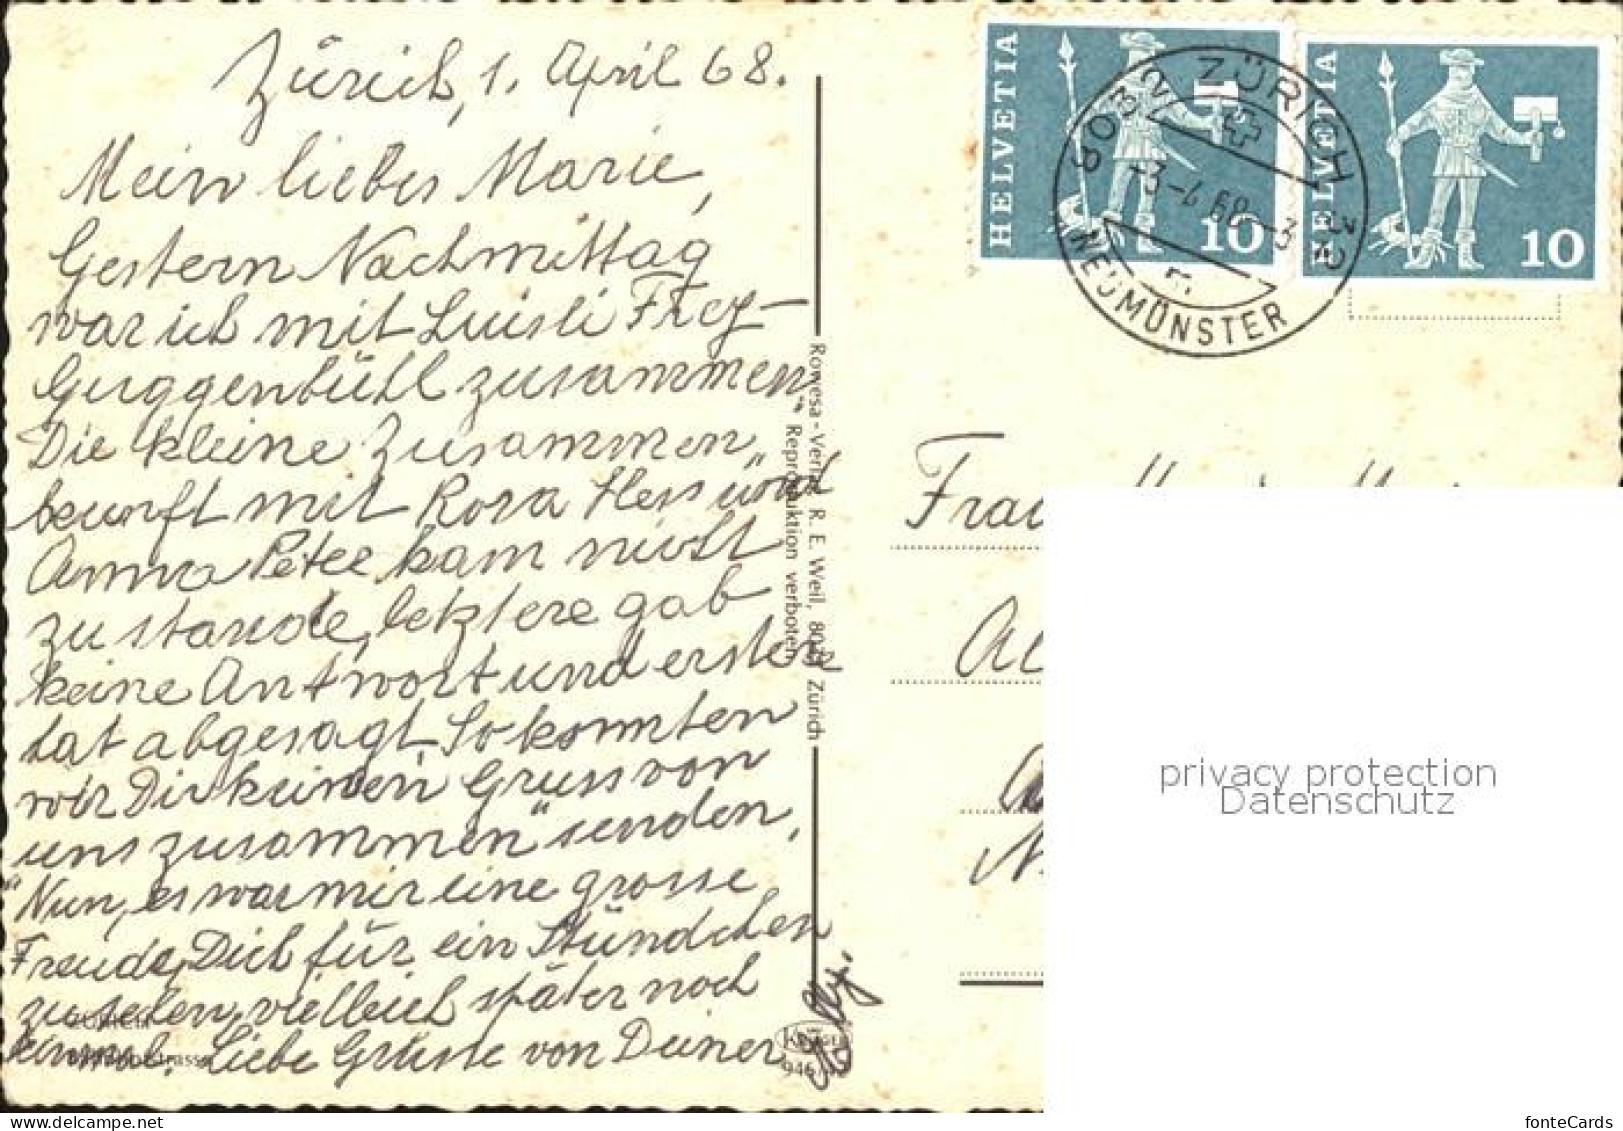 Zürich, 1. April 68.
Mein liebes Marie,
Gestern Nachmittag
war ich mit Luisli Frey-
Guggenbühl zusammen.
Die kleine Zusammen
kunft mit Rosa Hess und
Anna Peter kam nicht
zu stande, letztere gab
keine Antwort und erstere
hat abgesagt. So konnten
wir Dir keinen Gruss von
uns zusammen" senden,
"Nun, es war mir eine grosse
Freude, Dich für ein Stündchen
zu sehen, vielleich später noch
einmal. Liebe Grüsse von Deiner
ZÜRICH
Bahnhofstrasse
Rowesa - Verlag R. E. Weil, Zürich
Reproduktion verboten
HELVETIA
10
HELVETIA
10
8032 ZÜRICH 32
-3-4.68--3
NEUMÜNSTER
Frau
privacy protection
Datenschutz
fonteCards